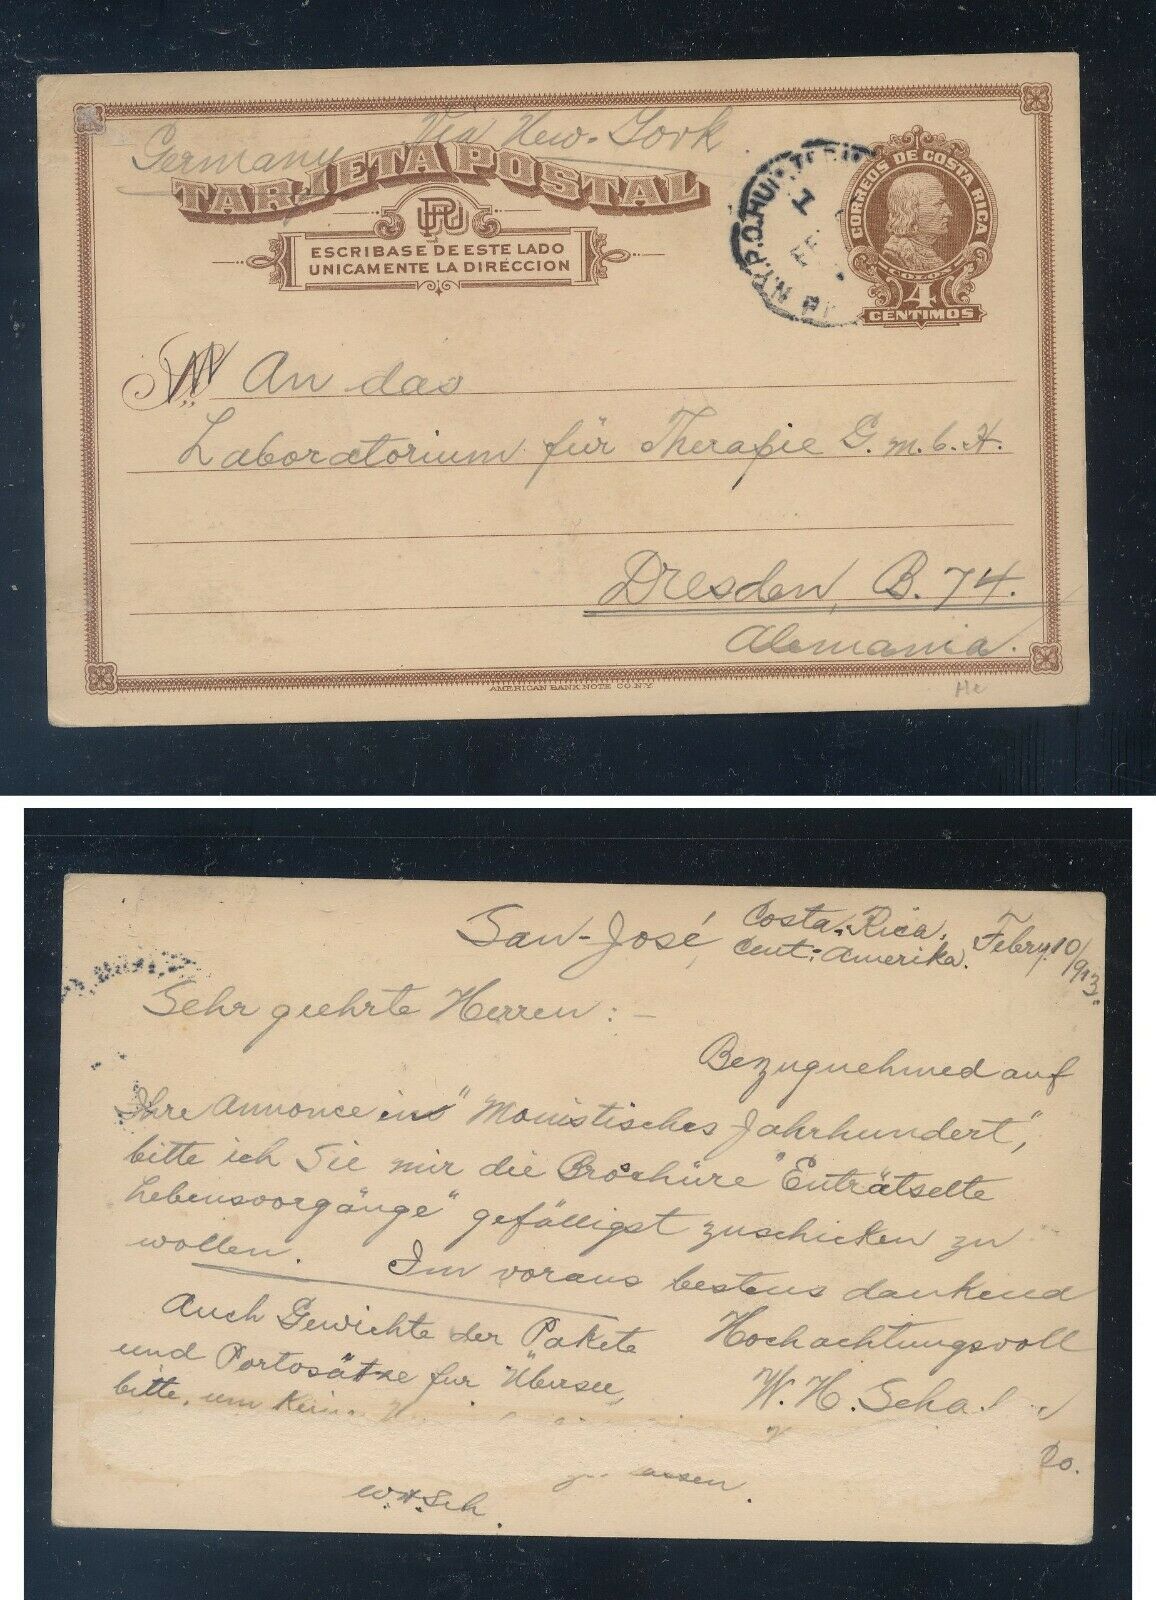 Germany Via New-York.
TARJETA POSTAL
UPU
ESCRIBASE DE ESTE LADO
UNICAMENTE LA DIRECCION
CORREOS DE COSTA RICA
COLON
4
CENTIMOS
N.Y.P.O.
1
An das
Laboratorium für Therapie G.m.b.H.
Dresden, B. 74.
Alemania.
AMERICAN BANK NOTE CO. N.Y.
San-José, Costa-Rica,
Cent: Amerika. Febry. 10/913.
Sehr geehrte Herren: -
Bezugnehmed auf
Ihre Annonce in "Monistisches Jahrhundert",
bitte ich Sie mir die Broschüre "Enträtselte
Lebensvorgänge" gefälligst zuschicken zu
wollen. Im voraus bestens dankend
Auch Gewichte der Pakete Hochachtungsvoll
und Portosätze für Übersee, W. H. Scha
bitte, um
Do.
W.H.Sch.